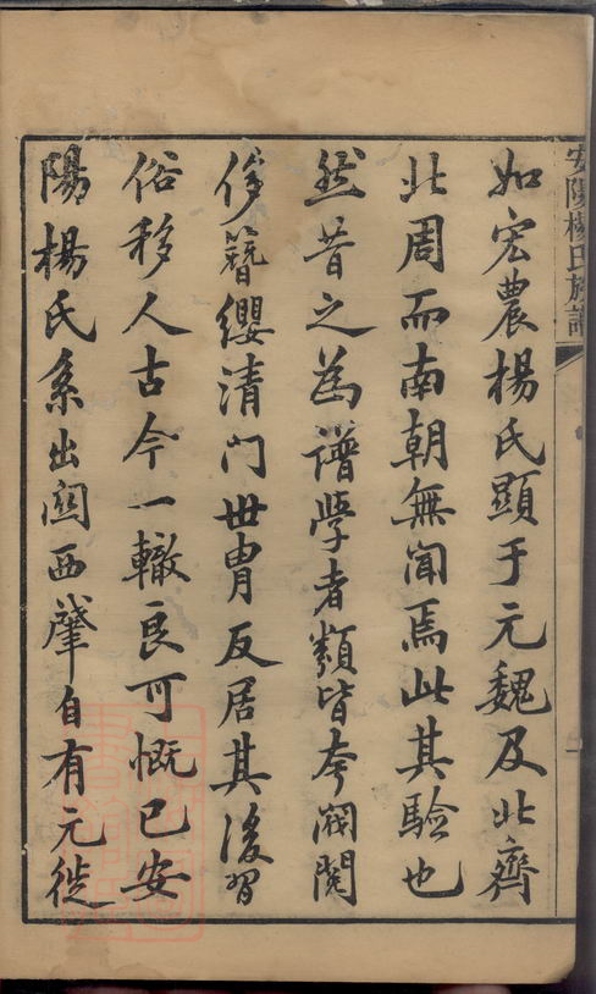 安陽楊氏族譜
如宏農楊氏顯于元魏及北齊
北周而南朝無聞焉此其驗也
然昔之為譜學者類皆夸閥閱
侈簪纓清門世胄反居其後習
俗移人古今一轍良可慨已安
陽楊氏系出関西肈自有元徙